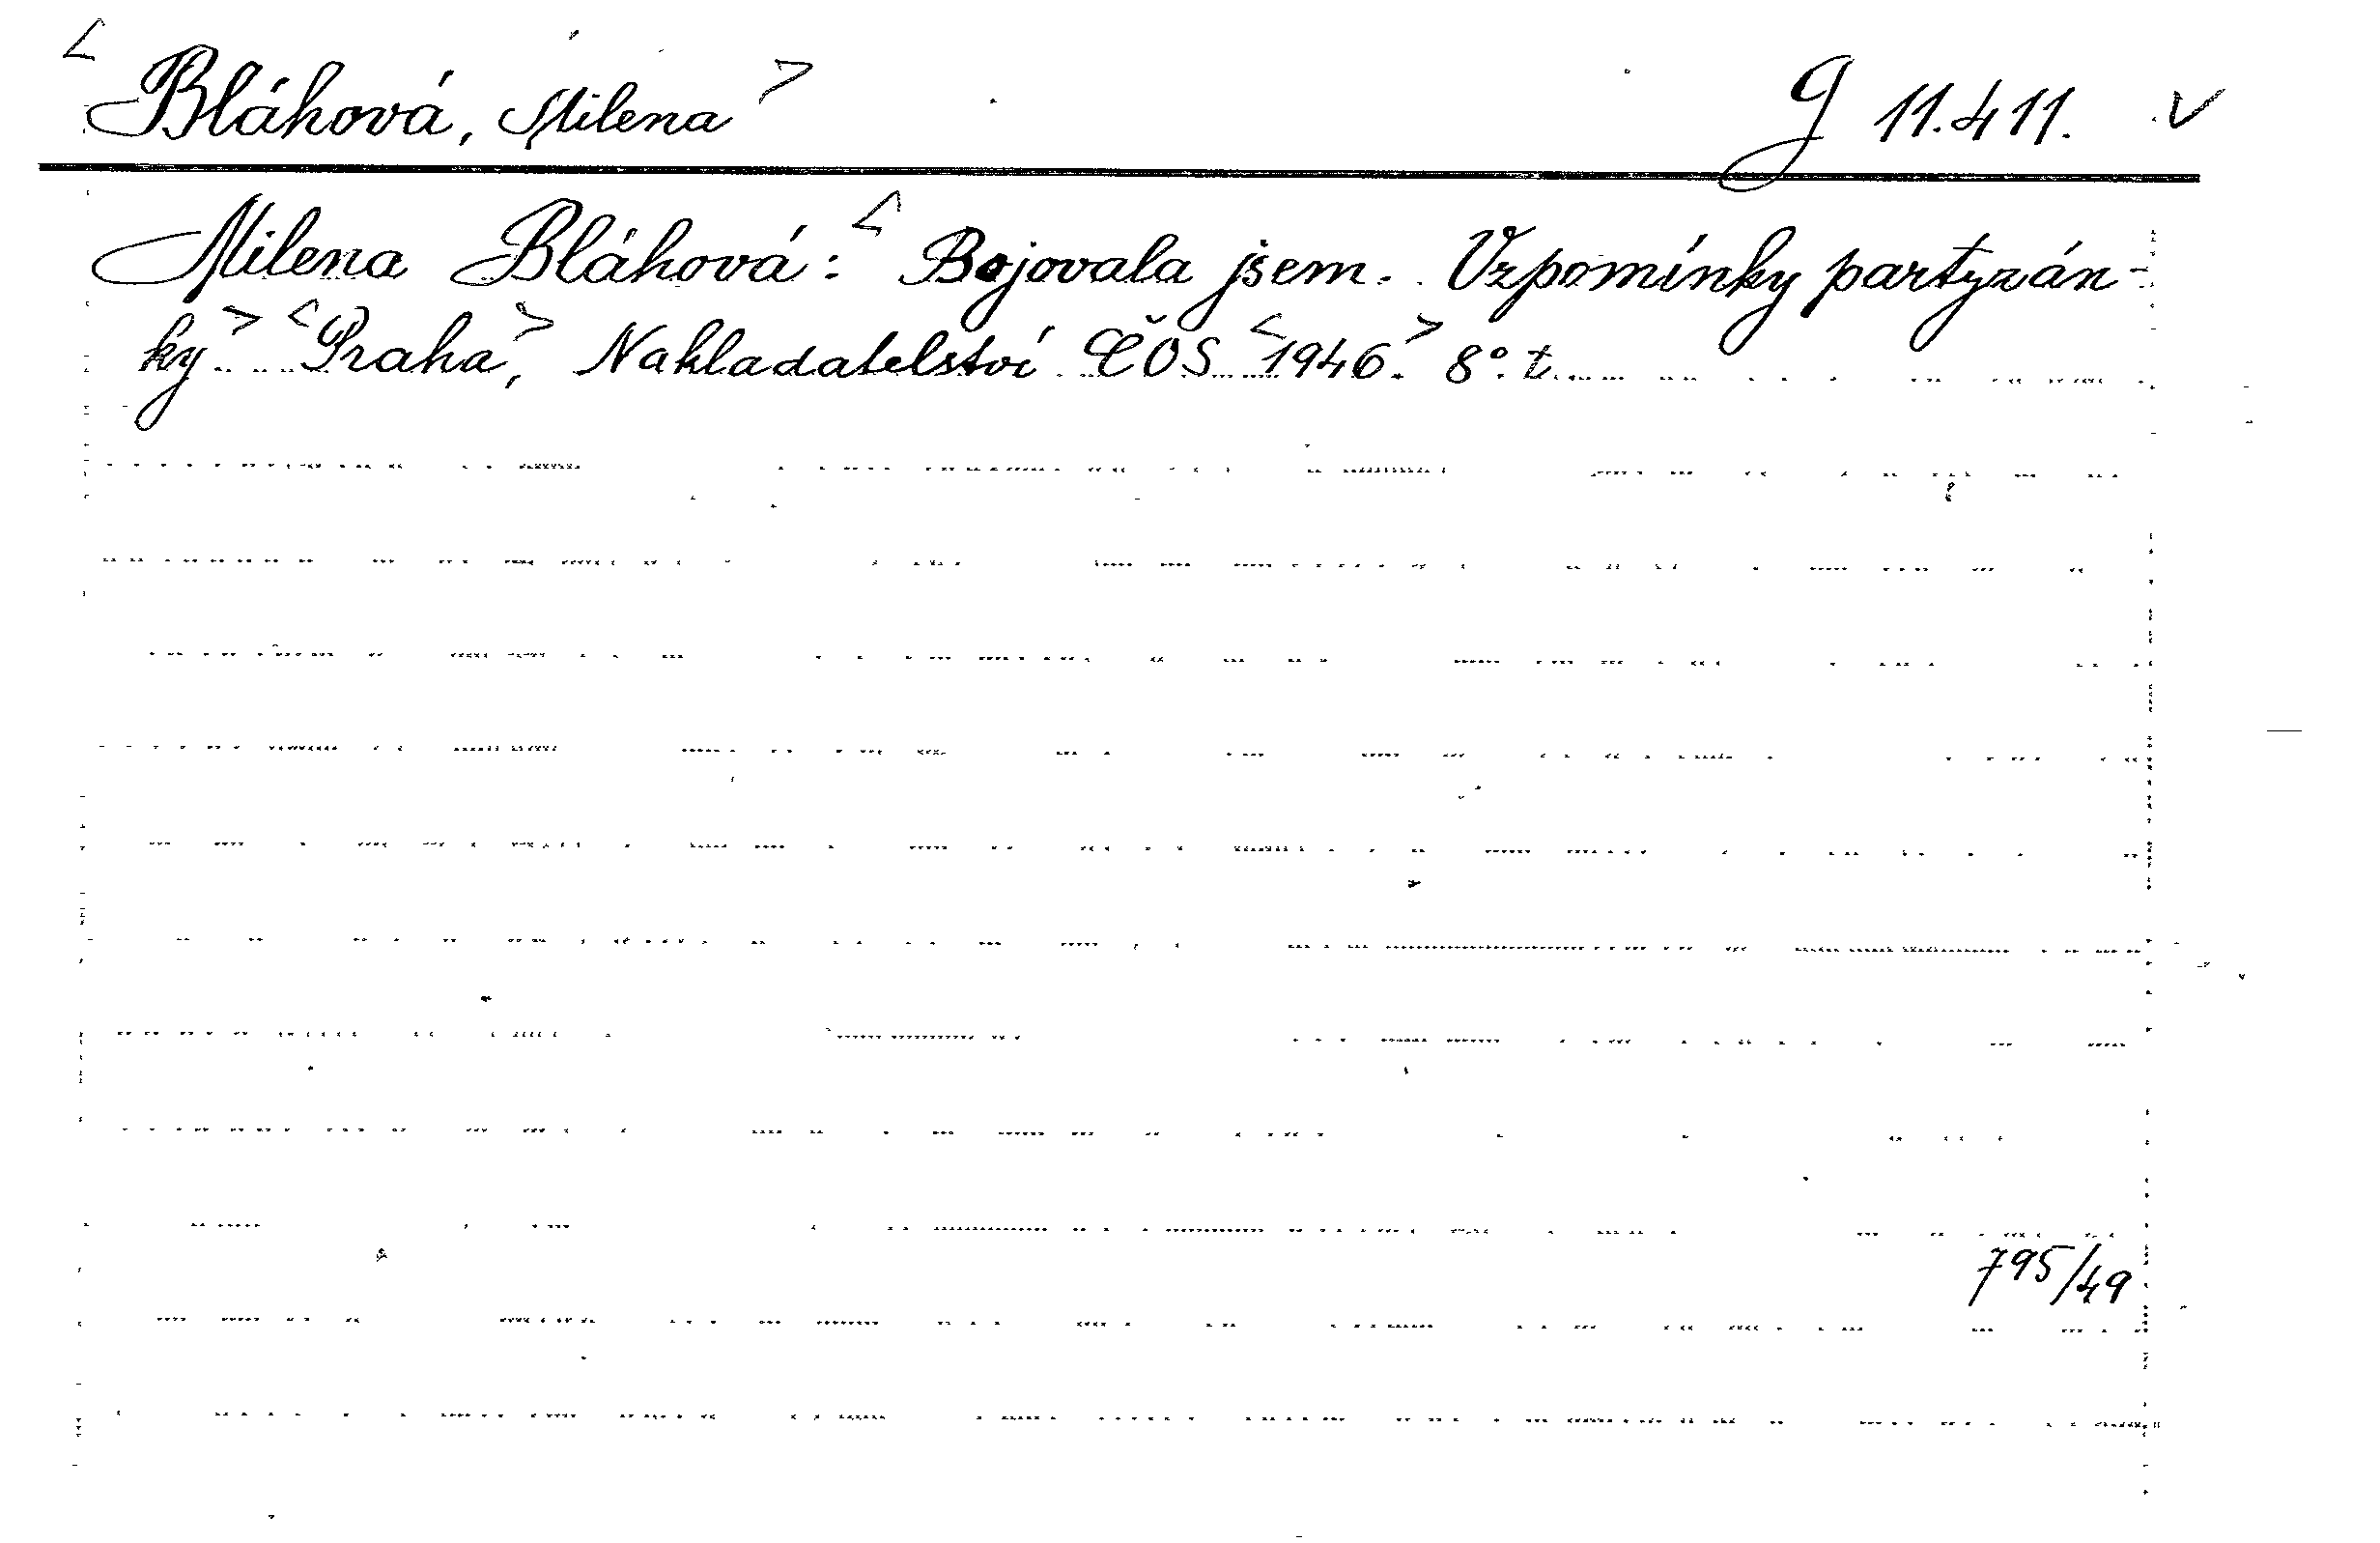 <Bláhová, Milena> G 11.411. v
Milena Bláhová: <Bojovala jsem. Vzpomínky partyzán-
ky.> <Praha>, Nakladatelství ČOS <1946.> 8° t.
795/49